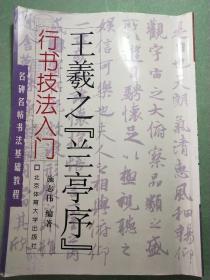 也天朗氣清惠風和暢
觀宇宙之大俯察品類之盛
騁懷足以極視聽
王羲之『兰亭序』
行书技法入门
施志伟 编著
北京体育大学出版社
名碑名帖书法基础教程